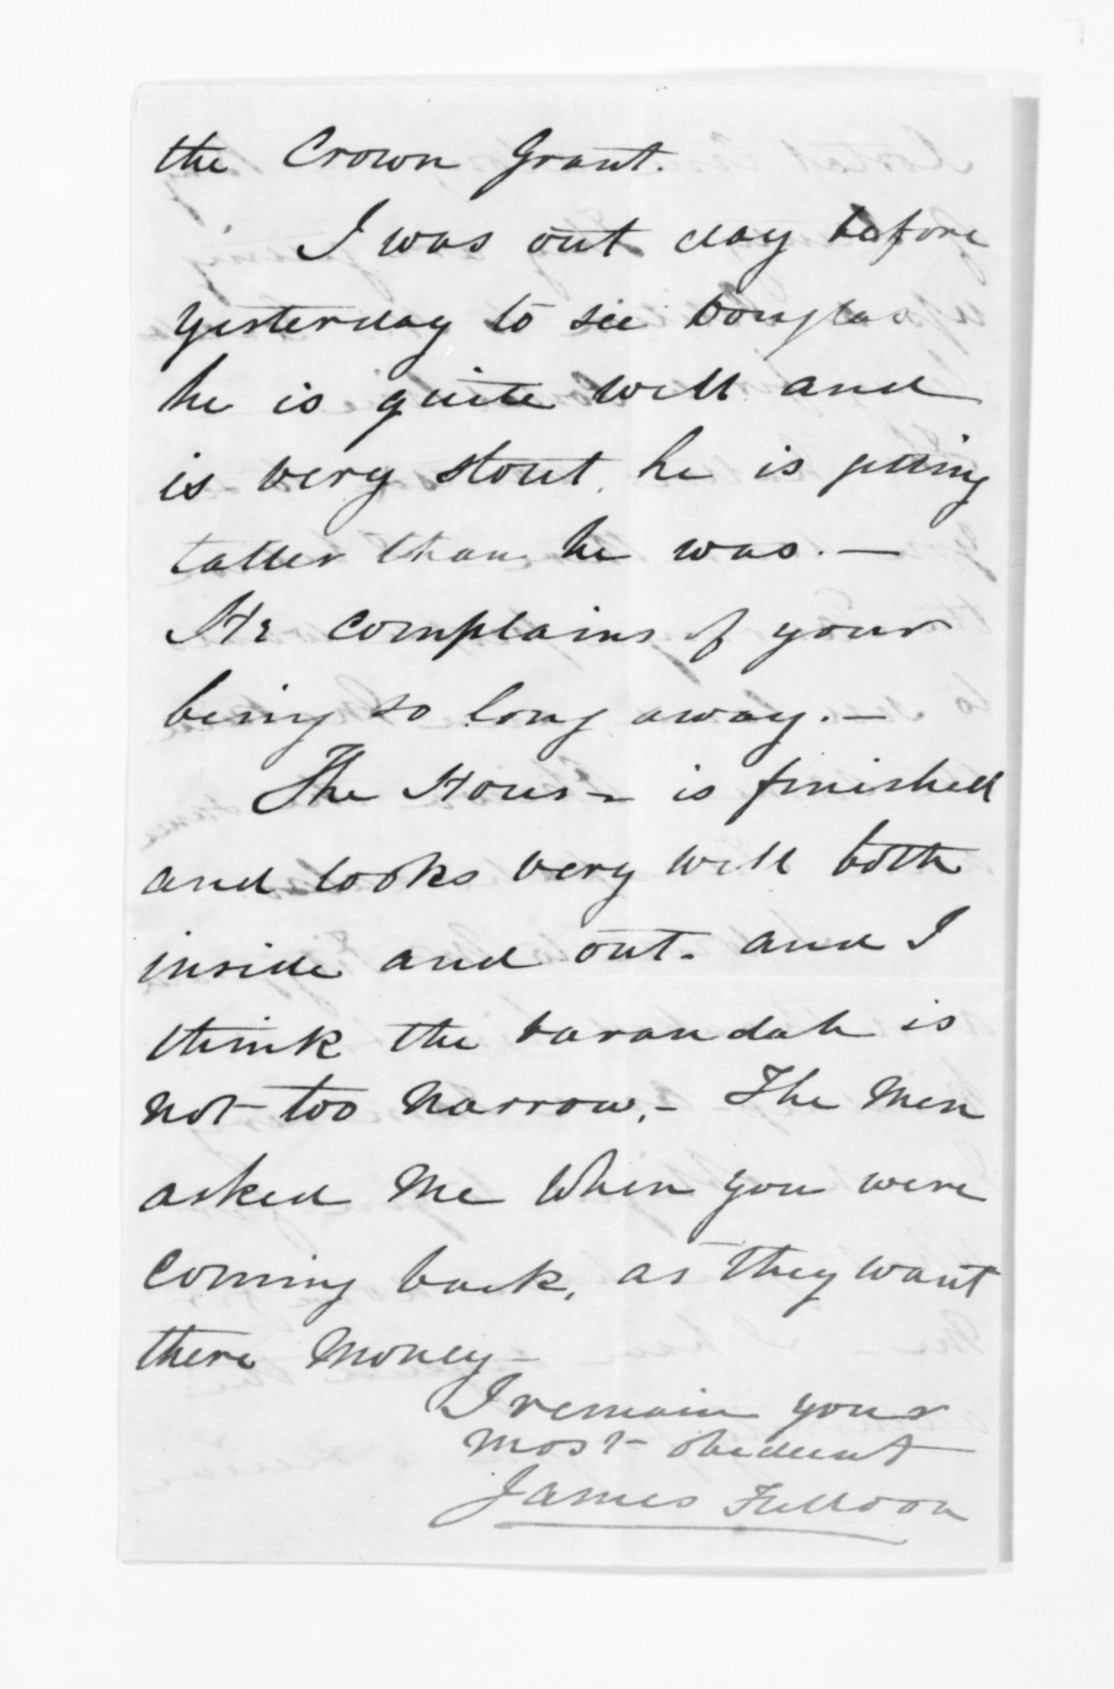 the Crown Grant.
I was out day before
yesterday to see Douglas
he is quite well and
is very stout. he is getting
taller than he was. —
He complains of your
being so long away. —
The House is finished
and looks very well both
inside and out. and I
think the varandah is
not too narrow. – The Men
asked Me When you were
coming back, as they want
there Money –
I remain your
most obedient
James Fulloon